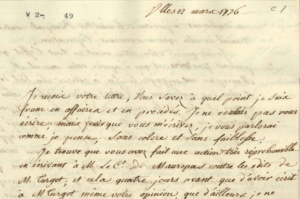 V 27 49
12 mars 1776
c 1
Je reçois votre lettre, Vous savez à quel point je suis
franc en affaires et en procédés. Je ne voulois pas vous
écrire, mais puisque vous m'écrivez, je vous parlerai
comme je pense, sans colere et sans foiblesse.
Je trouve que vous avez fait une action très répréhensible
en écrivant à M. le Cte. de Maurepas contre les édits de
M. Turgot, et cela quatre jours avant que d'avoir écrit
à M. Turgot même votre opinion, que d'ailleurs je ne